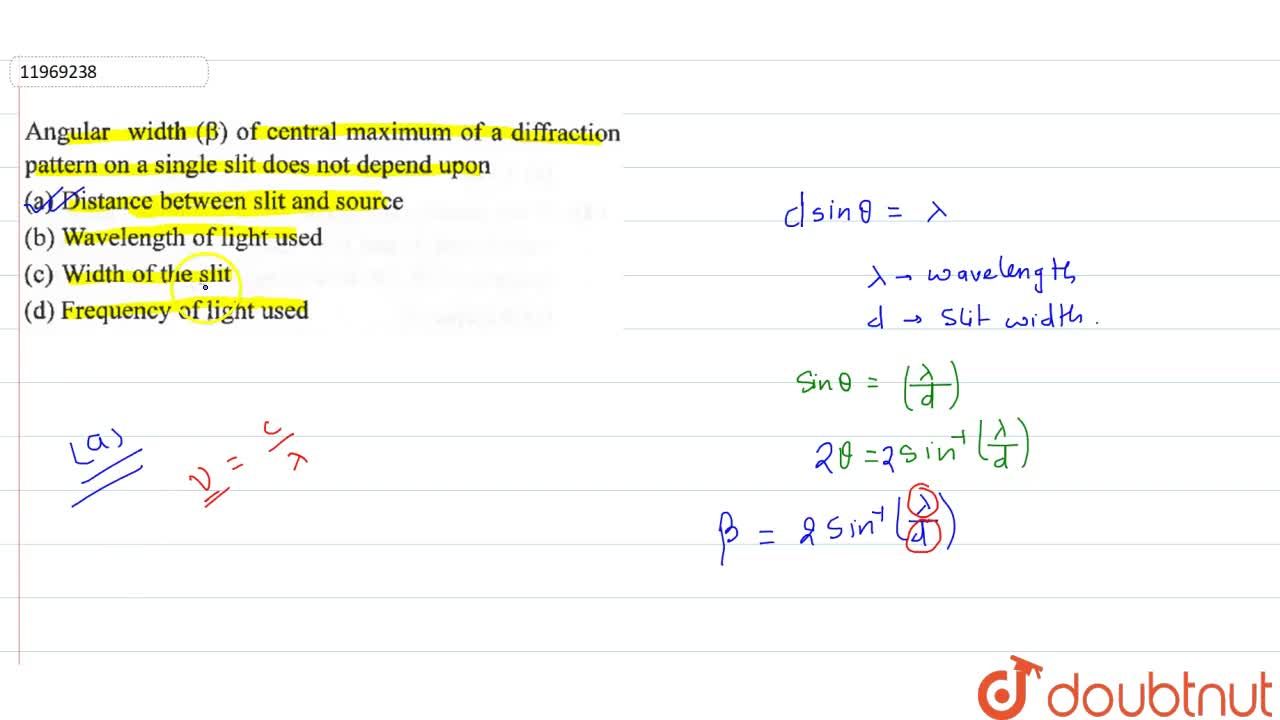 11969238
Angular width (β) of central maximum of a diffraction
pattern on a single slit does not depend upon
(a) Distance between slit and source
(b) Wavelength of light used
(c) Width of the slit
(d) Frequency of light used
d sin θ = λ
λ → wavelength
d → slit width.
Sin θ = (λ/d)
2θ = 2 Sin⁻¹ (λ/d)
β = 2 Sin⁻¹ (λ/d)
(a)
ν = c/λ
doubtnut